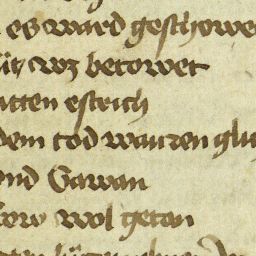 es ward geschowe
ütz wz betowet
atten estrich
dem tod warren glich
vnd Gawan
frow wol getan